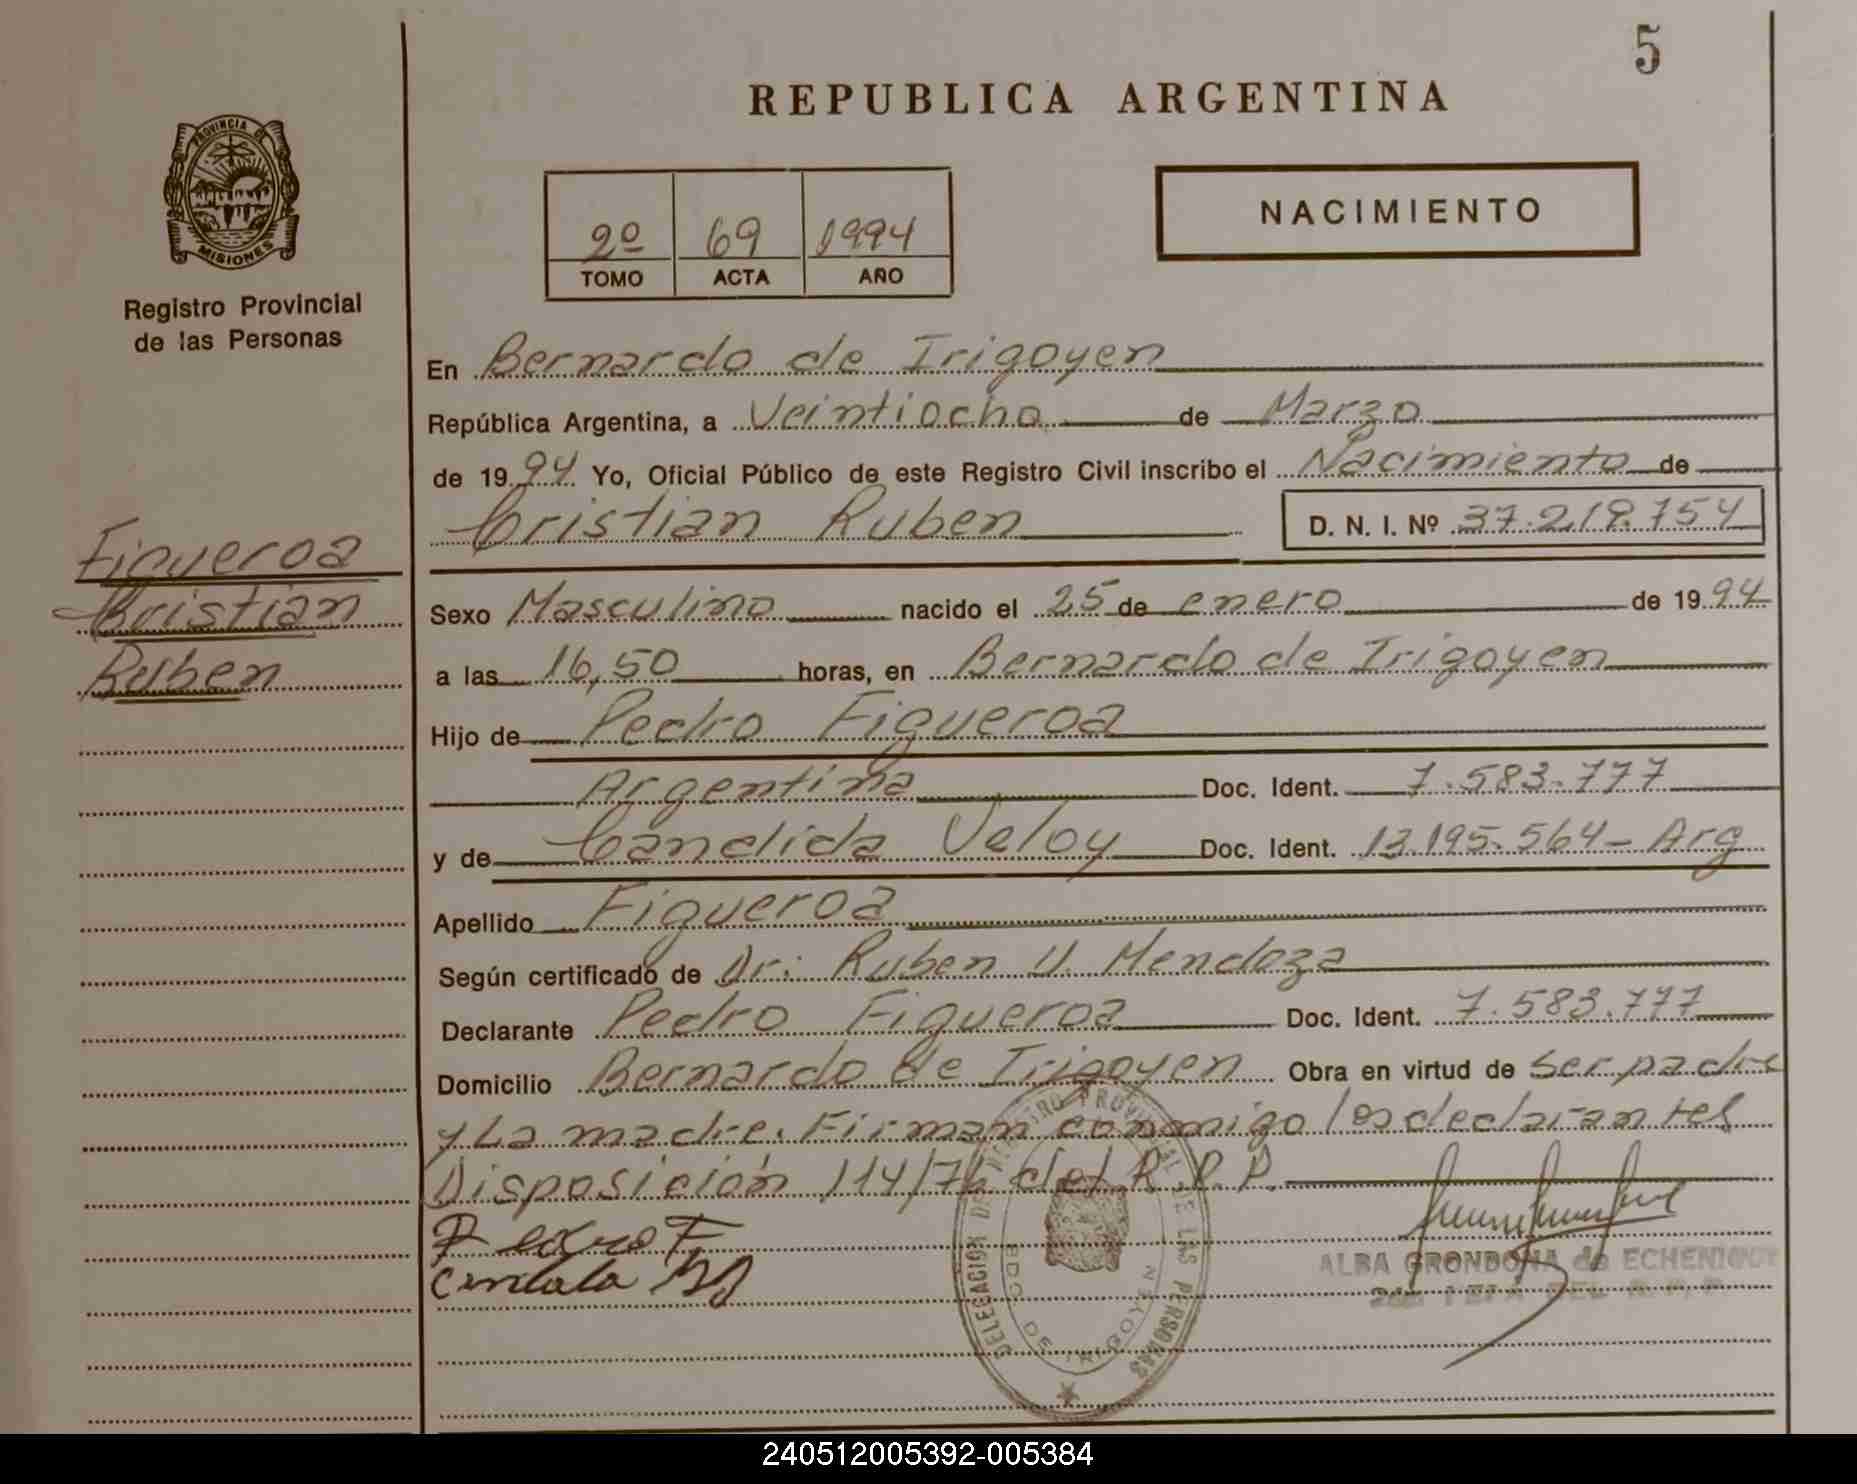 5
REPUBLICA ARGENTINA
PROVINCIA DE
MISIONES
Registro Provincial
de las Personas
2º 69 1994
TOMO ACTA AÑO
NACIMIENTO
En Bernardo de Irigoyen
República Argentina, a Veintiocho de Marzo
de 1994 Yo, Oficial Público de este Registro Civil inscribo el Nacimiento de
Cristian Ruben D. N. I. Nº 37.218.754
Figueroa
Cristian
Ruben
Sexo Masculino nacido el 25 de enero de 1994
a las 16,50 horas, en Bernardo de Irigoyen
Hijo de Pedro Figueroa
Argentina Doc. Ident. 7.583.777
y de Candida Veloy Doc. Ident. 13.195.564- Arg
Apellido Figueroa
Según certificado de Dr: Ruben U. Mendoza
Declarante Pedro Figueroa Doc. Ident. 7.583.777
Domicilio Bernardo de Irigoyen Obra en virtud de Ser padre
y La madre. Firman conmigo los declarantes
Disposición 114/76 del R. P. P.
Pedro F
DELEGACION DEL REGISTRO PROVINCIAL DE LAS PERSONAS
BDO. DE IRIGOYEN
ALBA GRONDONA de ECHENIQUE
JEFA DEL R. P. P
240512005392-005384